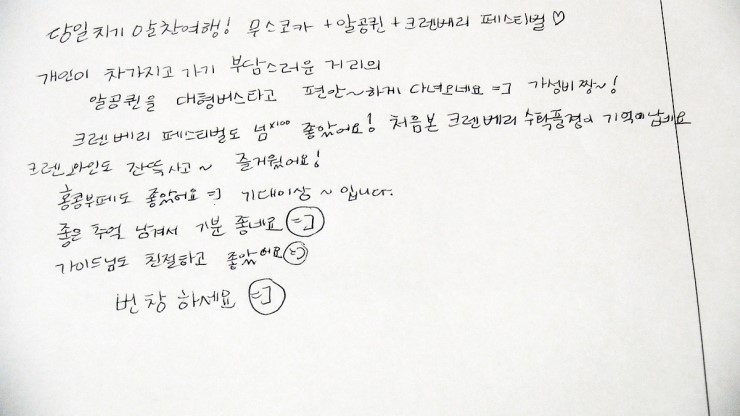 당일치기 알찬여행! 무스코카 + 알공퀸 + 크렌베리 페스티벌 ♡
개인이 차가지고 가기 부담스러운 거리의
알공퀸을 대형버스타고 편안~하게 다녀오네요 =] 가성비짱~!
크렌베리 페스티벌도 넘×100 좋았어요! 처음본 크렌베리 수확풍경이 기억에남네요
크렌와인도 잔뜩사고~ 즐거웠어요!
홍콩부페도 좋았어요 =] 기대이상~입니다.
좋은 추억 남겨서 기분 좋네요 =]
가이드님도 친절하고 좋았어요 =]
번창하세요 =]